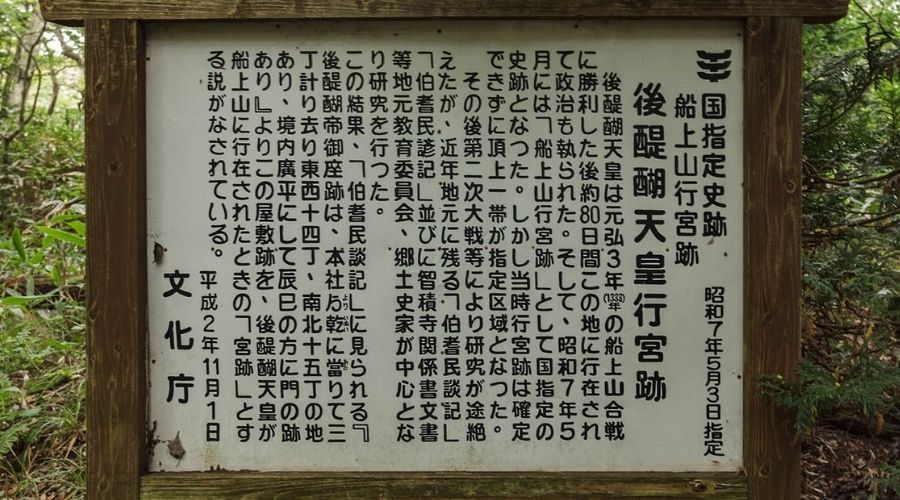 国指定史跡
船上山行宮跡
昭和7年5月3日指定
後醍醐天皇行宮跡
後醍醐天皇は元弘3年(1333年)の船上山合戦
に勝利した後約80日間この地に行在され
て政治も執られた。そして、昭和7年5
月には「船上山行宮跡」として国指定の
史跡となつた。しかし当時行宮跡は確定
できずに頂上一帯が指定区域となつた。
その後第二次大戦等により研究が途絶
えたが、近年地元に残る「伯耆民談記」
「伯耆民諺記」並びに智積寺関係書文書
等地元教育委員会、郷土史家が中心とな
り研究を行つた。
この結果、「伯耆民談記」に見られる『
後醍醐帝御座跡は、本社乾に當りて三
丁計り去り東西十四丁、南北十五丁の地
あり、境内廣平にして辰巳の方に門の跡
あり』よりこの屋敷跡を、後醍醐天皇が
船上山に行在されたときの「宮跡」とす
る説がなされている。
平成2年11月1日
文化庁